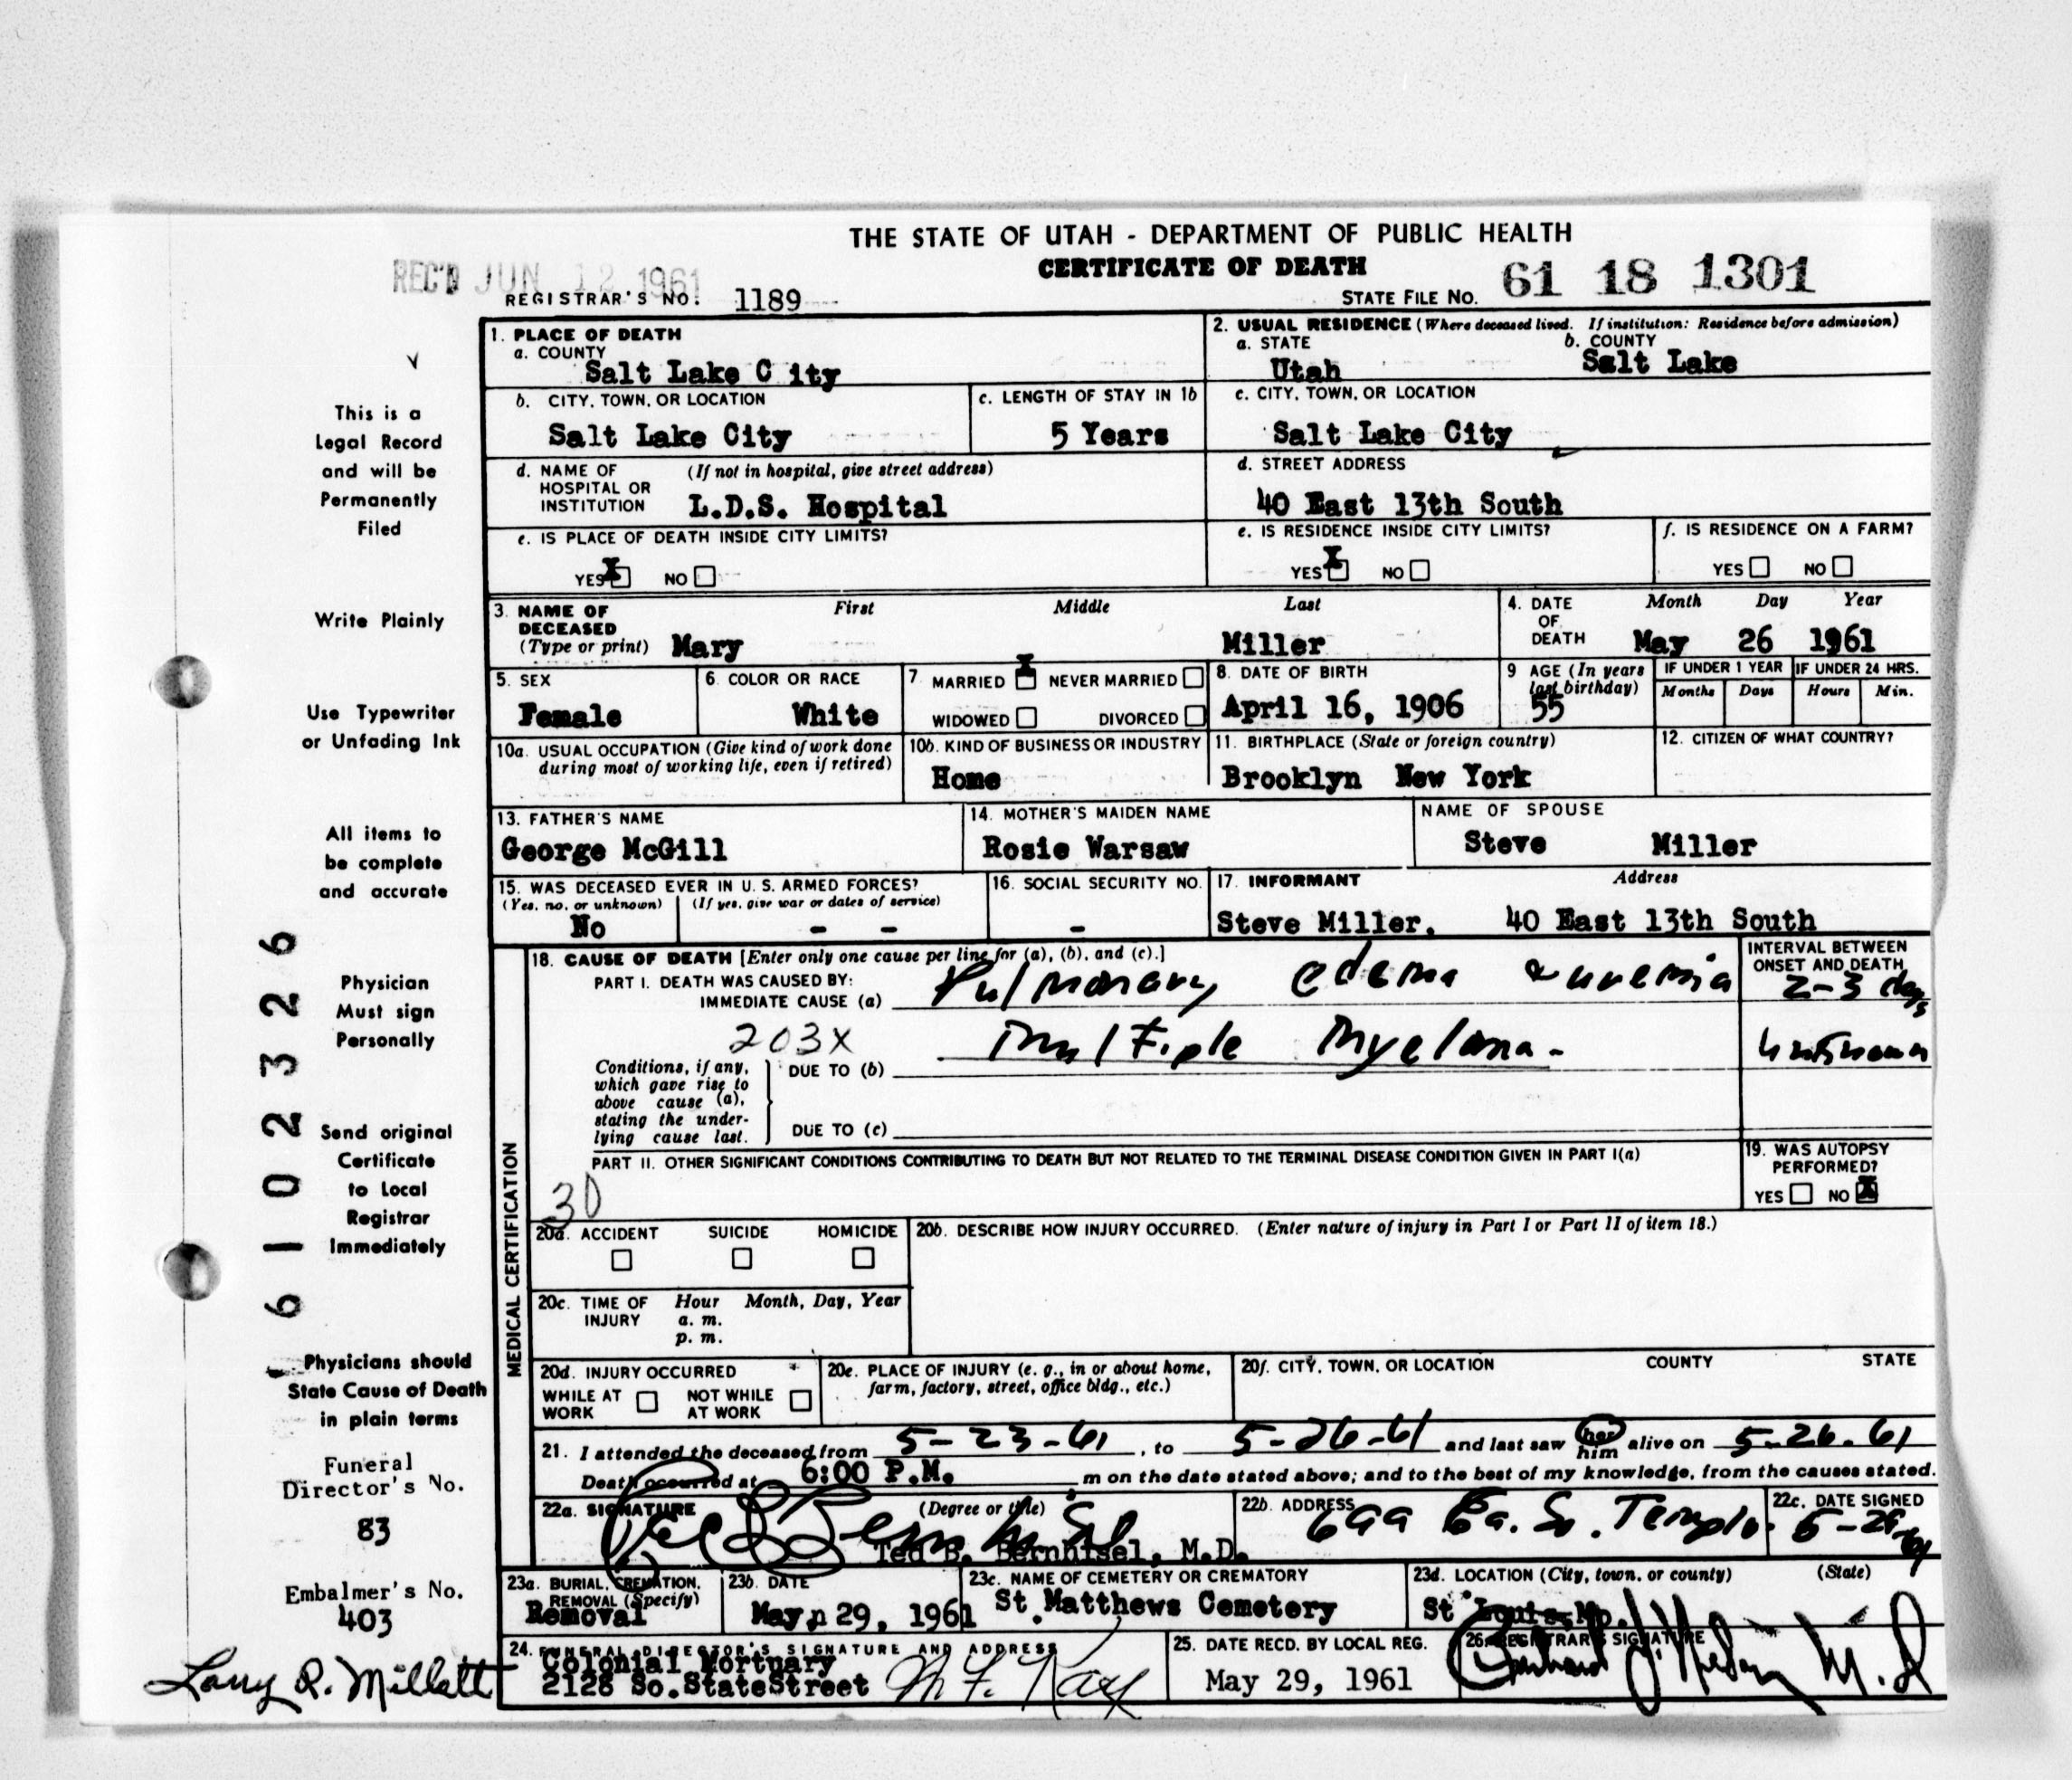 THE STATE OF UTAH - DEPARTMENT OF PUBLIC HEALTH
CERTIFICATE OF DEATH
REC'D JUN 12 1961
REGISTRAR'S NO. 1189
STATE FILE NO. 61 18 1301
1. PLACE OF DEATH
a. COUNTY
Salt Lake C ity
2. USUAL RESIDENCE (Where deceased lived. If institution: Residence before admission)
a. STATE
Utah
b. COUNTY
Salt Lake
b. CITY, TOWN, OR LOCATION
Salt Lake City
c. LENGTH OF STAY IN 1b
5 Years
c. CITY, TOWN, OR LOCATION
Salt Lake City
d. NAME OF HOSPITAL OR INSTITUTION
(If not in hospital, give street address)
L.D.S. Hospital
d. STREET ADDRESS
40 East 13th South
e. IS PLACE OF DEATH INSIDE CITY LIMITS?
YES X NO
e. IS RESIDENCE INSIDE CITY LIMITS?
YES X NO
f. IS RESIDENCE ON A FARM?
YES NO
3. NAME OF DECEASED
(Type or print)
First Middle Last
Mary Miller
4. DATE OF DEATH
Month Day Year
May 26 1961
5. SEX
Female
6. COLOR OR RACE
White
7. MARRIED X NEVER MARRIED
WIDOWED DIVORCED
8. DATE OF BIRTH
April 16, 1906
9 AGE (In years last birthday)
55
IF UNDER 1 YEAR
Months Days
IF UNDER 24 HRS.
Hours Min.
10a. USUAL OCCUPATION (Give kind of work done during most of working life, even if retired)
10b. KIND OF BUSINESS OR INDUSTRY
Home
11. BIRTHPLACE (State or foreign country)
Brooklyn New York
12. CITIZEN OF WHAT COUNTRY?
13. FATHER'S NAME
George McGill
14. MOTHER'S MAIDEN NAME
Rosie Warsaw
NAME OF SPOUSE
Steve Miller
15. WAS DECEASED EVER IN U. S. ARMED FORCES?
(Yes, no, or unknown) (If yes, give war or dates of service)
No - -
16. SOCIAL SECURITY NO.
-
17. INFORMANT Address
Steve Miller. 40 East 13th South
MEDICAL CERTIFICATION
18. CAUSE OF DEATH [Enter only one cause per line for (a), (b), and (c).]
PART I. DEATH WAS CAUSED BY:
IMMEDIATE CAUSE (a) Pulmonary edema & uremia
INTERVAL BETWEEN ONSET AND DEATH
2-3 days
203X
Conditions, if any, which gave rise to above cause (a), stating the underlying cause last.
DUE TO (b) Multiple Myeloma -
unknown
DUE TO (c)
PART II. OTHER SIGNIFICANT CONDITIONS CONTRIBUTING TO DEATH BUT NOT RELATED TO THE TERMINAL DISEASE CONDITION GIVEN IN PART I(a)
30
19. WAS AUTOPSY PERFORMED?
YES NO X
20a. ACCIDENT SUICIDE HOMICIDE
20b. DESCRIBE HOW INJURY OCCURRED. (Enter nature of injury in Part I or Part II of item 18.)
20c. TIME OF INJURY Hour Month, Day, Year
a. m.
p. m.
20d. INJURY OCCURRED
WHILE AT WORK NOT WHILE AT WORK
20e. PLACE OF INJURY (e. g., in or about home, farm, factory, street, office bldg., etc.)
20f. CITY, TOWN, OR LOCATION COUNTY STATE
21. I attended the deceased from 5-23-61, to 5-26-61 and last saw her him alive on 5-26-61
Death occurred at 6:00 P.M. m on the date stated above; and to the best of my knowledge, from the causes stated.
22a. SIGNATURE (Degree or title)
Ted B. Bernhisel, M.D.
22b. ADDRESS
699 Ea. So. Temple.
22c. DATE SIGNED
23a. BURIAL, CREMATION, REMOVAL (Specify)
Removal
23b. DATE
May 29, 1961
23c. NAME OF CEMETERY OR CREMATORY
St. Matthews Cemetery
23d. LOCATION (City, town, or county) (State)
St Louis Mo.
24. FUNERAL DIRECTOR'S SIGNATURE AND ADDRESS
Colonial Mortuary
2128 So. State Street
25. DATE RECD. BY LOCAL REG.
May 29, 1961
26. REGISTRAR'S SIGNATURE
M.D
This is a
Legal Record
and will be
Permanently
Filed
Write Plainly
Use Typewriter
or Unfading Ink
All items to
be complete
and accurate
Physician
Must sign
Personally
Send original
Certificate
to Local
Registrar
Immediately
Physicians should
State Cause of Death
in plain terms
Funeral
Director's No.
83
Embalmer's No.
403
Larry R. Millett
6102326